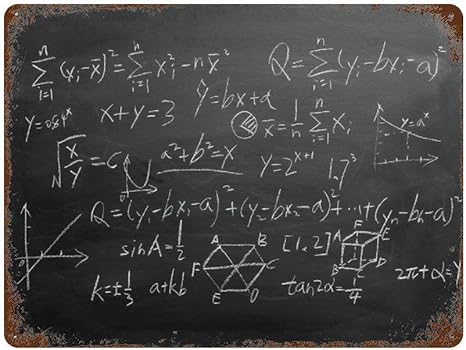 n∑i=1 (xᵢ-x̄)² = n∑i=1 xᵢ² - nx̄² Q = n∑i=1 (yᵢ-bxᵢ-a)²
x+y=3 Ŷ=bx+a x̄ = 1/n n∑i=1 xᵢ y=aˣ
√(x/y) = C a²+b²=x y=2ˣ⁺¹ 1.7³
Q=(y₁-bx₁-a)²+(y₂-bx₂-a)²+...+(yₙ-bxₙ-a)²
sinA=1/2 A B [1.2] F E
F C D
k=±1/3 a+kb E D tan2α=1/4 2π+α=